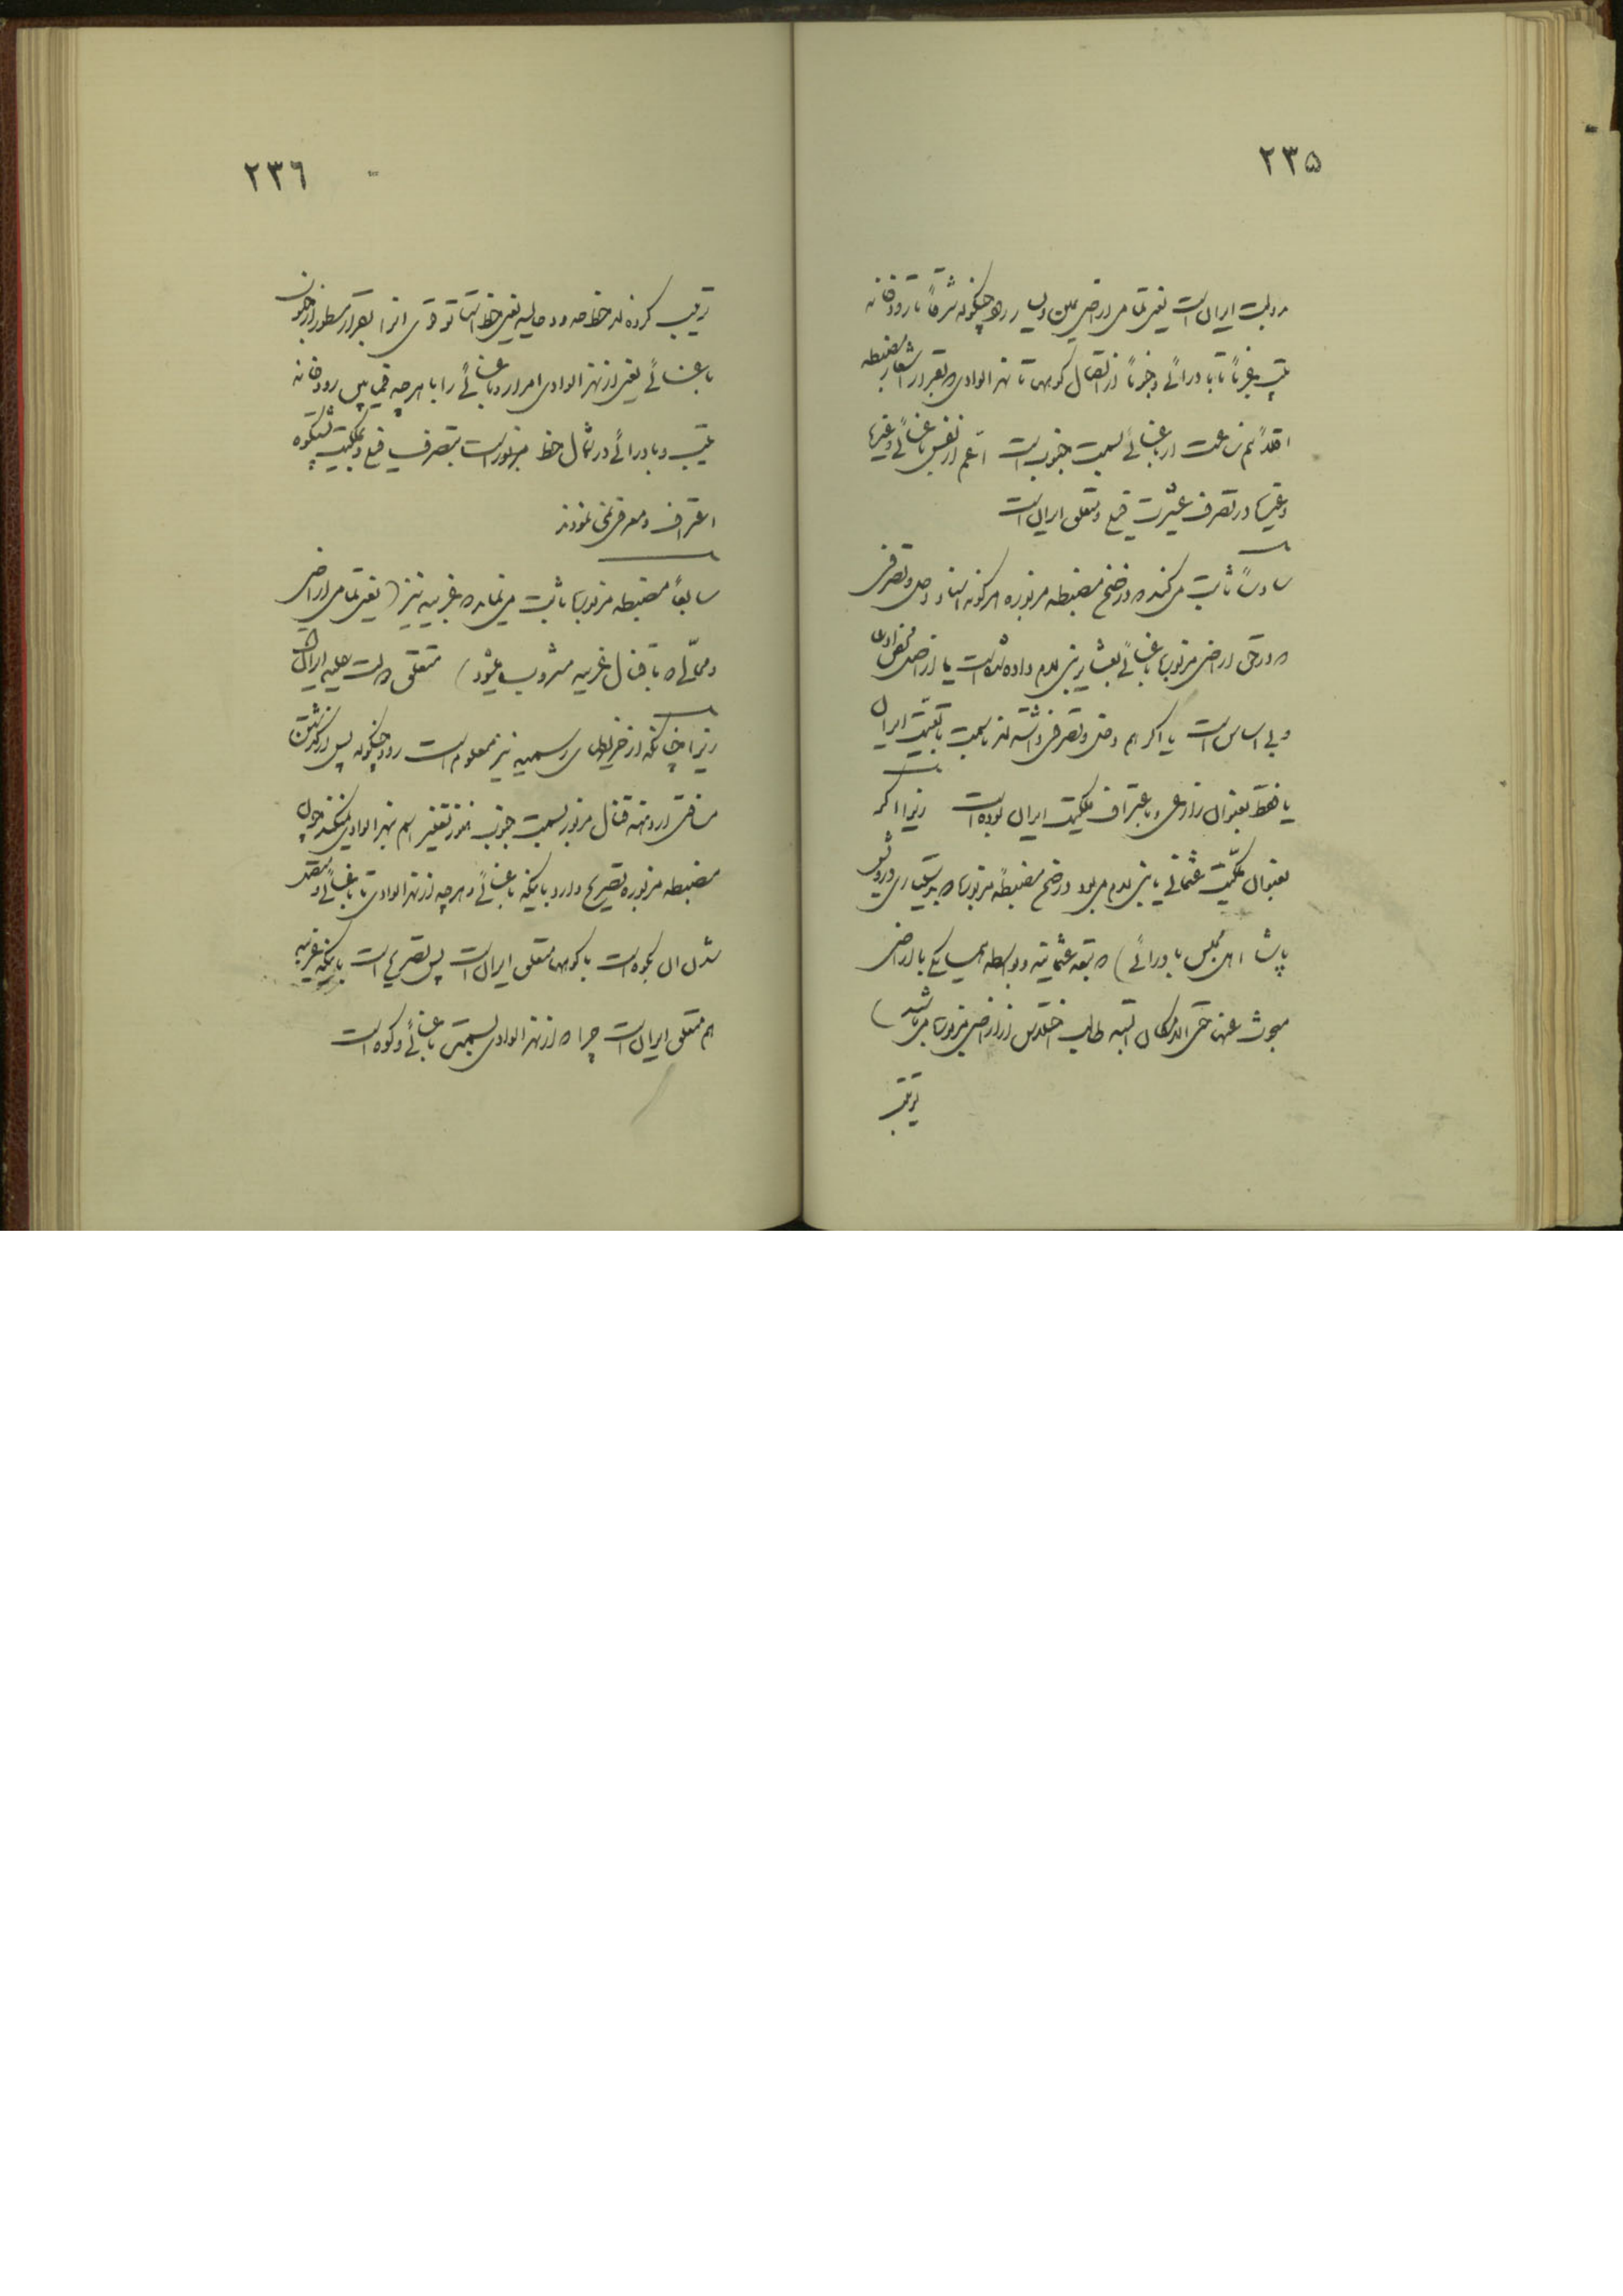 ۲۳۵
دولت ایران است یعنی تمامی اراضی یمین و یسار رود چنگوله شرقاً تا رودخانه
غرباً تا بادرائی و جنوباً از اتصال کوهها تا نهر الوادی که بقرار اشعار مضبطه
اقلاً نیم ساعت از باغسائی بسمت جنوب است اعم از نفس باغسائی و غیرها
و غیرها در تصرف عشیرت فیلی و متعلق ایران است
سادساً ثابت می‌کند که وضع مضبطه مزبوره هرگونه اسناد دخل و تصرفی
که در حق اراضی مزبوره باغسائی بعشایر بنی لام داده شده است یا از اصل
و بی اساس است یا اگر هم دخل و تصرفی داشته‌اند بسمت تابعیت ایران
یا فقط بعنوان زراعی و باعتراف ملکیت ایران بوده است زیرا اگر
بعنوان ملکیت عثمانی یا بنی لام می‌بود وضع مضبطه مزبوره که بدستیاری درویش
پاشا اهل مجلس بادرائی) که تبعه عثمانیه و بواسطه همسایگی با اراضی
مبحوث عنها حتی الامکان البته طالب اختلاس اراضی مزبوره می‌باشند)
ترتیب
۲۳۶
ترتیب کرده‌اند خط حدود حالیه یعنی خط استاتوقوی انرا بقرار مسطور از جنوب
باغسائی یعنی از نهر الوادی امرار و باغسائی را با هر چه فیمابین رودخانه
و بادرائی در شمال خط مزبور است بتصرف فیلی و ملکیت پشتکوه
اعتراف و معرفی نمی نمودند
سابعاً مضبطه مزبوره ثابت می‌نماید که غربیه نیز (یعنی تمامی اراضی
و محالی که با قنال غربیه مشروب میشود) متعلق دولت علیه ایران است
زیرا چنانکه از خریطهای رسمیه نیز معلوم است رود چنگوله پس از گذشتن
مسافتی از دهنه قنال مزبور بسمت جنوب هنوز تغییر اسم بنهر الوادی میکند چون
مضبطه مزبوره تصریح دارد باینکه باغسائی و هر چه از نهر الوادی تا باغسائی و متصل
شدن ان بکوه است با کوهها متعلق ایران است پس تصریح است باینکه غربیه
هم متعلق ایران است چرا که از نهر الوادی بسمت باغسائی و کوه است